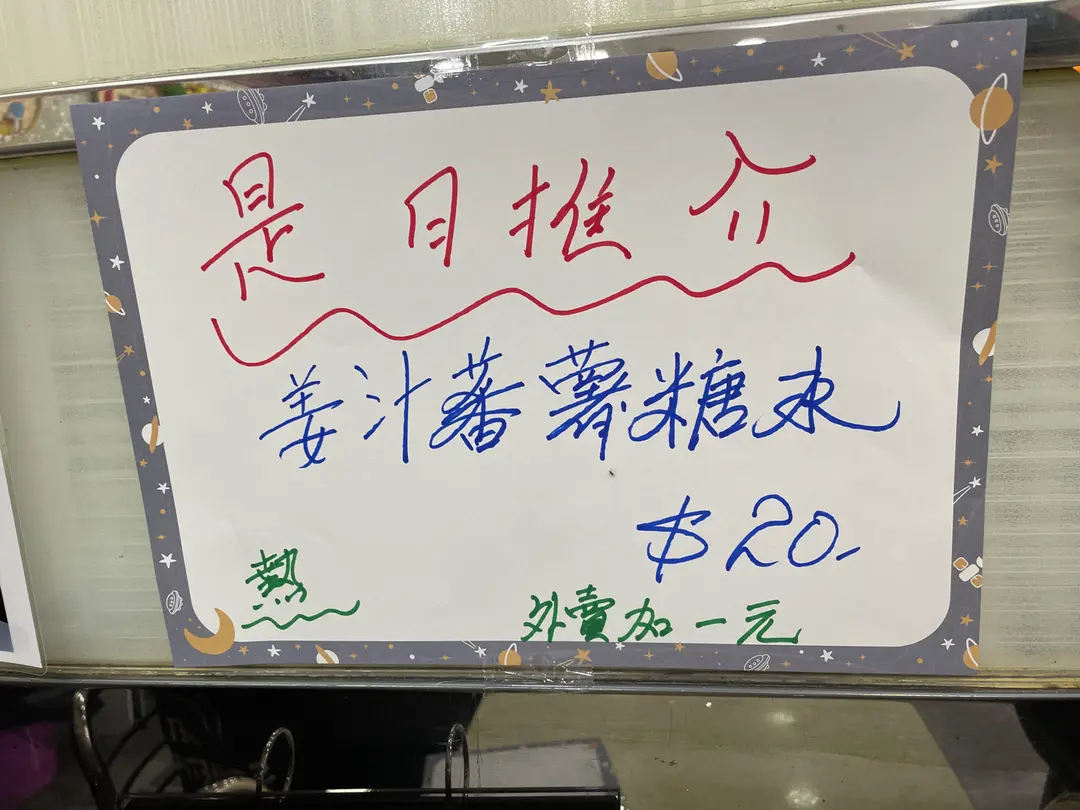 是日推介
姜汁蕃薯糖水
$20.
熱
外賣加一元